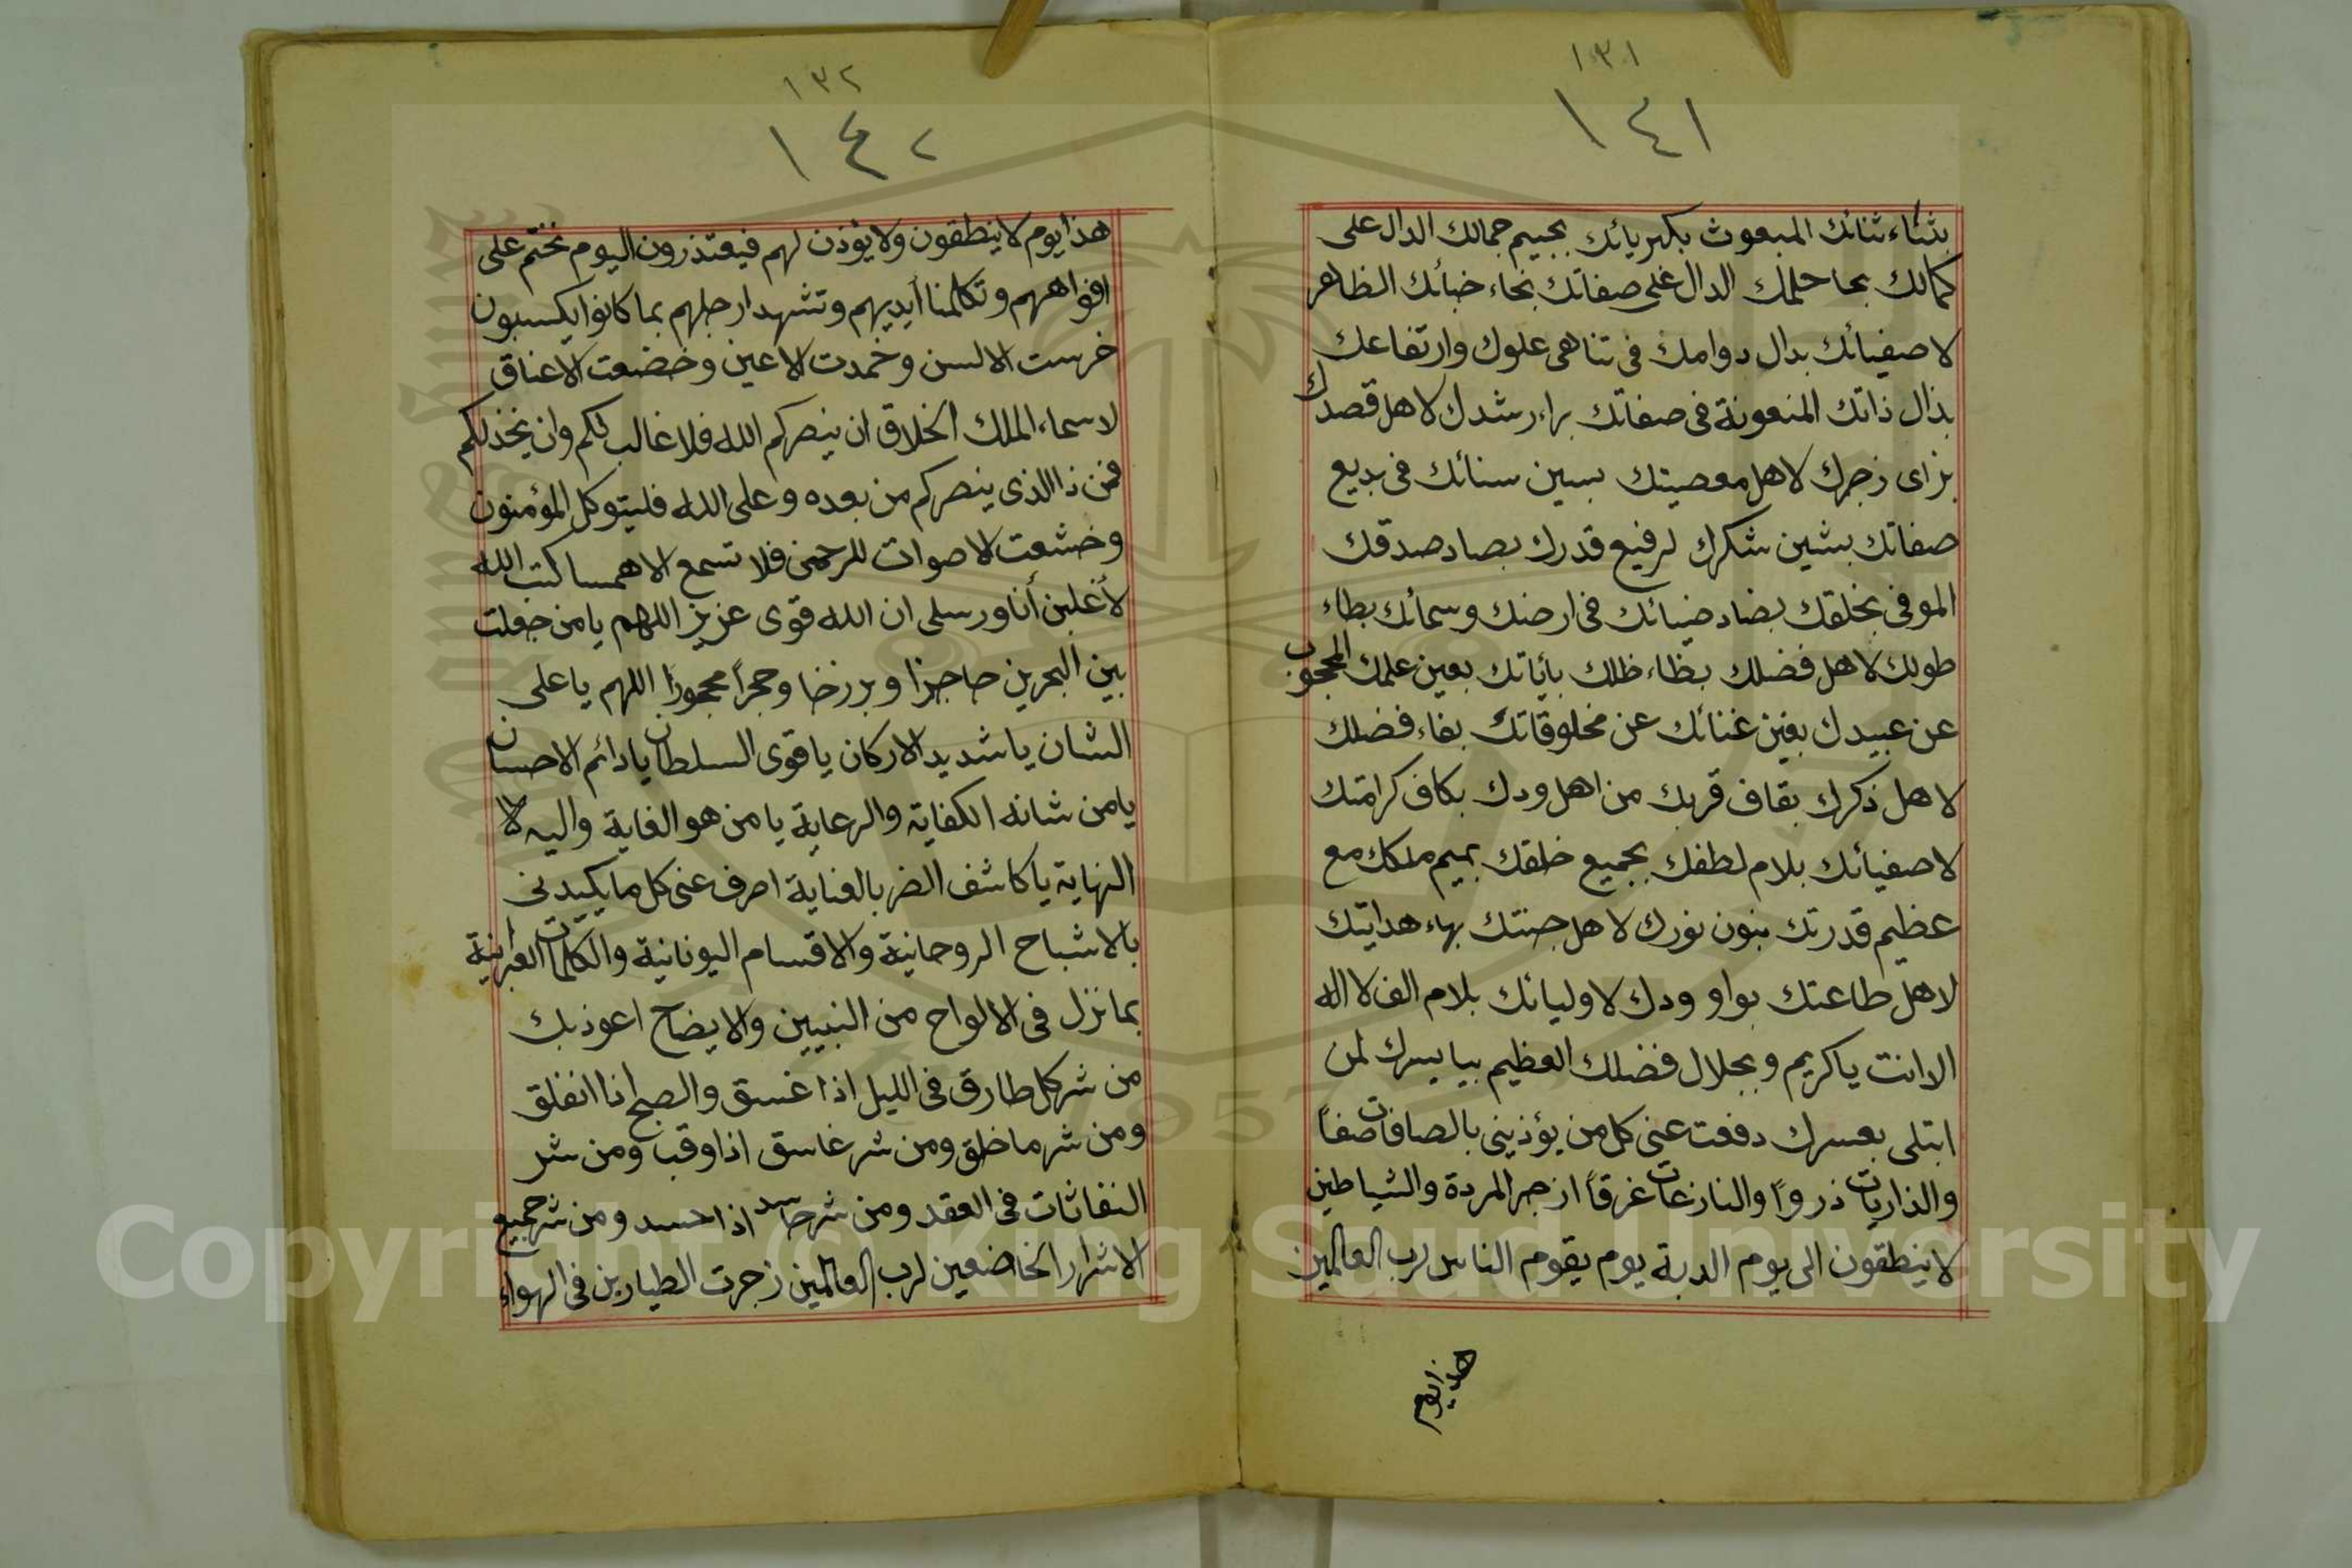 ١٣١
١٤١
بثناء ثنائك المبعوث بكبريائك بجيم جمالك الدال على
كمالك بحا حلمك الدال على صفاتك بخاء خبأئك الظاهر
لاصفيائك بدال دوامك فى تناهى علوك وارتفاعك
بذال ذاتك المنعوتة فى صفاتك براء رشدك لاهل قصدك
بزاى زجرك لاهل معصيتك بسين سنائك فى بديع
صفاتك بشين شكرك لرفيع قدرك بصاد صدقك
الموفى بخلقك بضاد ضيائك فى ارضك وسمائك بطاء
طولك لاهل فضلك بظاء ظلك بأياتك بعين علمك المحجوب
عن عبيدك بغين غنائك عن مخلوقاتك بفاء فضلك
لاهل ذكرك بقاف قربك من اهل ودك بكاف كرامتك
لاصفيائك بلام لطفك بجميع خلقك بميم ملكك مع
عظيم قدرتك بنون نورك لاهل جنتك بهاء هدايتك
لاهل طاعتك بواو ودك لاوليائك بلام الف لا اله
الا انت ياكريم وبجلال فضلك العظيم بيا يسرك لمن
ابتلى بعسرك دفعت عنى كل من يؤذينى بالصافات صفاً
والذاريات ذرواً والنازعات غرقاً ازجر المردة والشياطين
لا ينطقون الى يوم الدبة يوم يقوم الناس لرب العالمين
هذا يوم
١٣٢
١٤٢
هذا يوم لا ينطقون ولا يؤذن لهم فيعتذرون اليوم نختم على
افواههم وتكلمنا أيديهم وتشهد ارجلهم بما كانوا يكسبون
خرست الالسن وخمدت الاعين وخضعت الاعناق
لاسماء الملك الخلاق ان ينصركم الله فلا غالب لكم وان يخذلكم
فمن ذا الذى ينصركم من بعده وعلى الله فليتوكل المؤمنون
وخشعت الاصوات للرحمن فلا تسمع الا همسا كتب الله
لأغلبن أنا ورسلى ان الله قوى عزيز اللهم يا من جعلت
بين البحرين حاجزا وبرزخا وحجراً محجوراً اللهم يا على
الشان يا شديد الاركان يا قوى السلطان يا دائم الاحسان
يا من شانه الكفاية والرعاية يا من هو الغاية واليه لا
النهاية يا كاشف الضر بالعناية اصرف عنى كل ما يكيدنى
بالاشباح الروحانية والاقسام اليونانية والكلمات العبرانية
بما نزل فى الالواح من النبيين والايضاح اعوذ بك
من شر كل طارق فى الليل اذا غسق والصبح اذا انفلق
ومن شر ما خلق ومن شر غاسق اذا وقب ومن شر
النفاثات فى العقد ومن شر حاسد اذا حسد ومن شر جميع
الاشرار الخاضعين لرب العالمين زجرت الطيارين فى الهواء
Copyright © King Saud University
1957